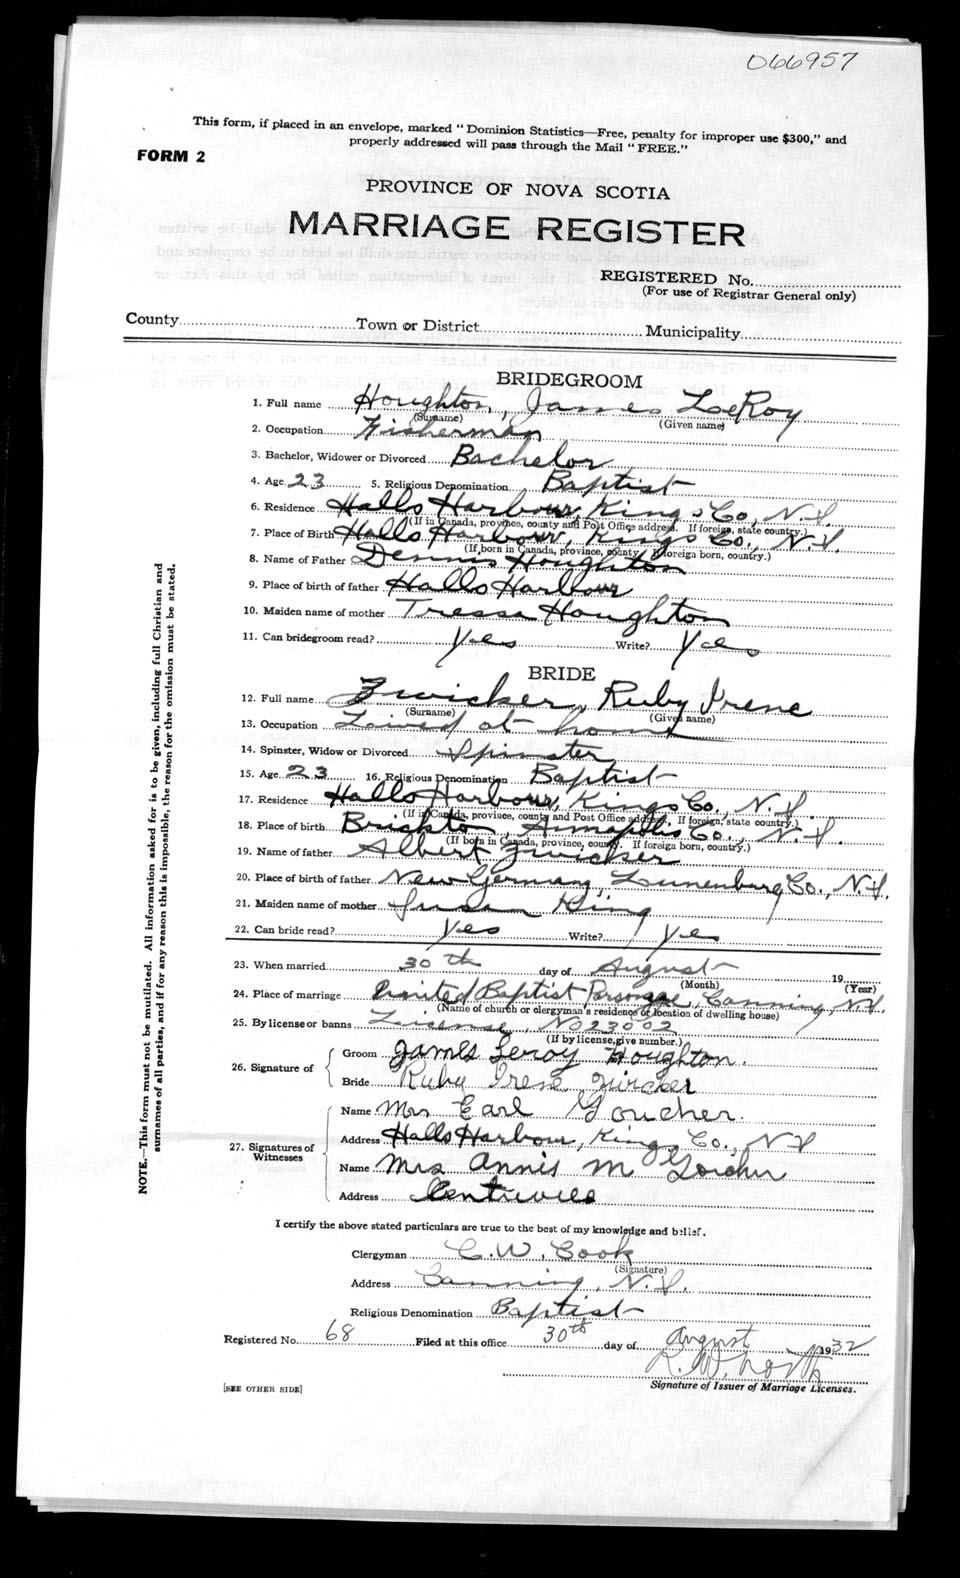 066957
This form, if placed in an envelope, marked "Dominion Statistics—Free, penalty for improper use $300," and
properly addressed will pass through the Mail "FREE."
FORM 2
PROVINCE OF NOVA SCOTIA
MARRIAGE REGISTER
REGISTERED No.
(For use of Registrar General only)
County Town or District Municipality
BRIDEGROOM
1. Full name Houghton, James LeRoy
(Surname) (Given name)
2. Occupation Fisherman
3. Bachelor, Widower or Divorced Bachelor
4. Age 23 5. Religious Denomination Baptist
6. Residence Halls Harbour, Kings Co, N.S.
(If in Canada, province, county and Post Office address. If foreign, state country.)
7. Place of Birth Halls Harbour, Kings Co., N.S.
(If born in Canada, province, county. If foreign born, country.)
8. Name of Father Dennis Houghton
9. Place of birth of father Halls Harbour
10. Maiden name of mother Tressa Houghton
11. Can bridegroom read? Yes Write? Yes
BRIDE
12. Full name Zwicker, Ruby Irene
(Surname) (Given name)
13. Occupation Lived at home
14. Spinster, Widow or Divorced Spinster
15. Age 23 16. Religious Denomination Baptist
17. Residence Halls Harbour, Kings Co., N.S.
(If in Canada, province, county and Post Office address. If foreign, state country.)
18. Place of birth Brickton, Annapolis Co., N.S.
(If born in Canada, province, county. If foreign born, country.)
19. Name of father Albert Zwicker
20. Place of birth of father New Germany, Lunenburg Co., N.S.
21. Maiden name of mother Susan King
22. Can bride read? Yes Write? Yes
23. When married 30th day of August 19
(Month) (Year)
24. Place of marriage United Baptist Parsonage, Canning, N.S.
(Name of church or clergyman's residence or location of dwelling house)
25. By license or banns License, No 23002
(If by license, give number.)
26. Signature of
Groom James Leroy Houghton.
Bride Ruby Irene Zwicker
27. Signatures of Witnesses
Name Mrs Earl Goucher.
Address Halls Harbour, Kings Co., N.S
Name Mrs Annis M Goucher
Address Centreville
I certify the above stated particulars are true to the best of my knowledge and belief.
Clergyman C. W. Cook
(Signature)
Address Canning, N.S.
Religious Denomination Baptist
Registered No. 68 Filed at this office 30th day of August 1932
R. W. North
Signature of Issuer of Marriage Licenses.
[SEE OTHER SIDE]
NOTE.—This form must not be mutilated. All information asked for is to be given, including full Christian and
surnames of all parties, and if for any reason this is impossible, the reason for the omission must be stated.